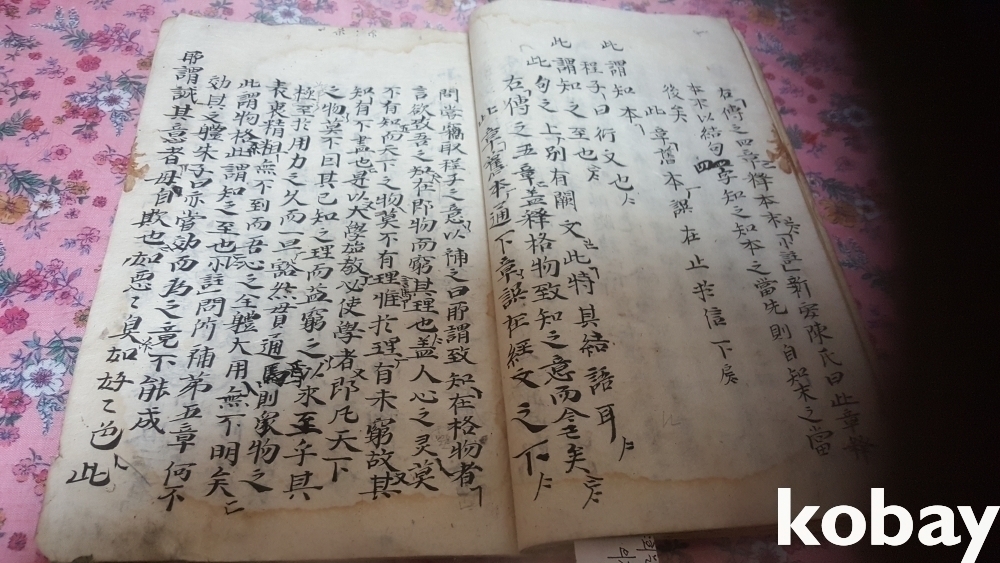 右傳之四章釋本末 小註 新安陳氏曰此章釋
本末以結句四字知之知本之當先則自知末之當
後矣
此章舊本誤在止於信下
此謂知本
程子曰衍文也
此謂知之至也
此句之上別有闕文此特其結語耳
右傳之五章盖釋格物致知之意而今亡矣
此章舊本通下章誤在經文之下
間嘗竊取程子之意以補之曰所謂致知在格物者
言欲致吾之知在即物而窮其理也盖人心之灵莫
不有知而天下之物莫不有理惟於理有未窮故其
知有不盡也是以大學始敎必使學者即凡天下
之物莫不因其已知之理而益窮之以求至乎其
極至於用力之久而一旦豁然貫通焉則衆物之
表裏精粗無不到而吾心之全體大用無不明矣
此謂物格此謂知之至也 小註 問所補第五章何不
効其文體朱子曰亦嘗効而爲之竟不能成
所謂誠其意者毋自欺也如惡〻臭如好〻色此
kobay